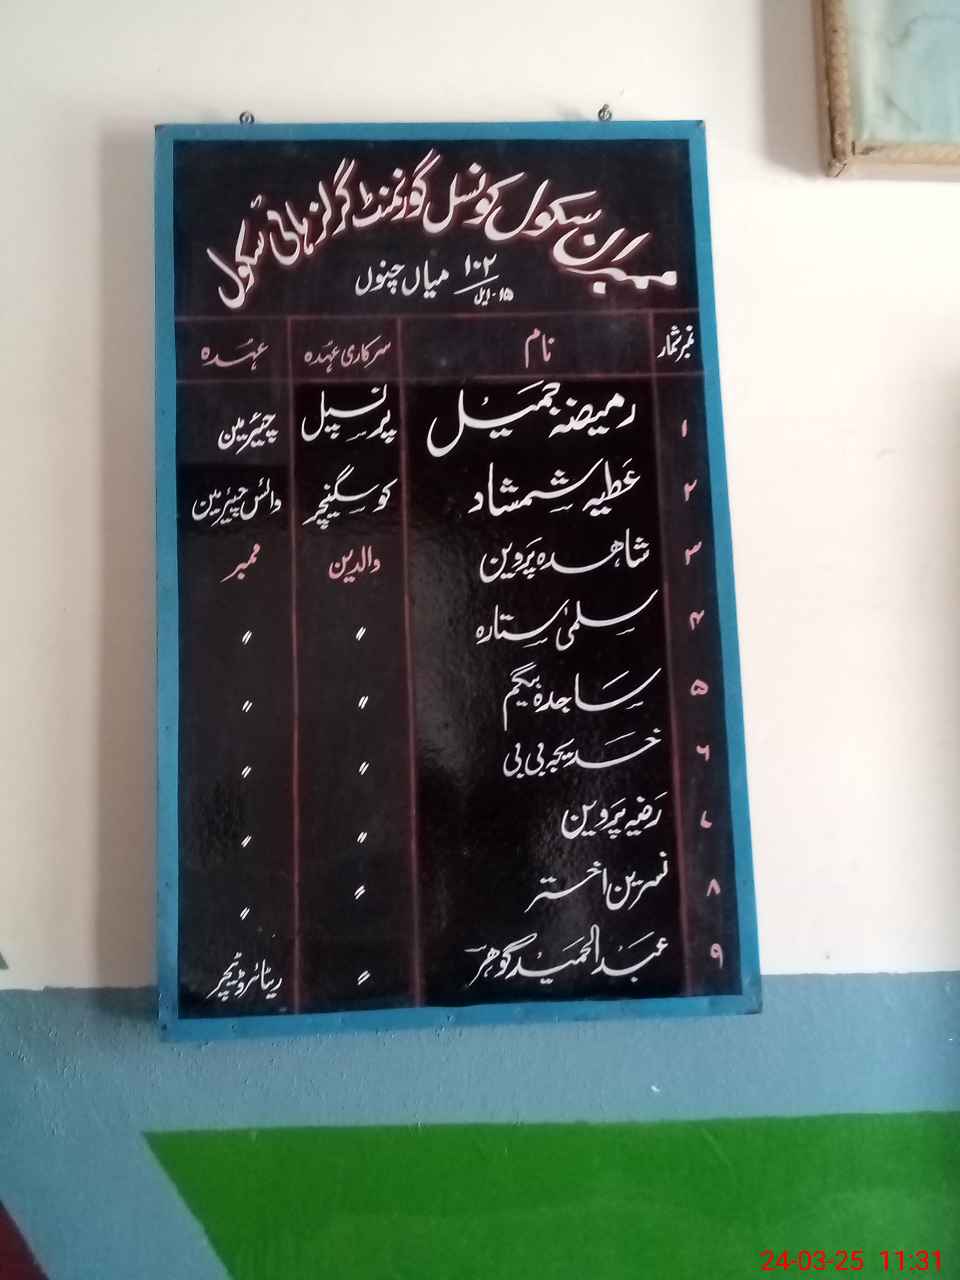 ممبران سکول کونسل گورنمنٹ گرلز ہائی سکول
۱۰۲/۱۵-ایل میاں چنوں
نمبر شمار نام سرکاری عہدہ عہدہ
۱ رمیضہ جمیل پرنسپل چیئرمین
۲ عطیہ شمشاد کو سگنیچر وائس چیئرمین
۳ شاھدہ پروین والدین ممبر
۴ سلمیٰ ستارہ 〃 〃
۵ ساجدہ بیگم 〃 〃
۶ خدیجہ بی بی 〃 〃
۷ رضیہ پروین 〃 〃
۸ نسرین اختر 〃 〃
۹ عبدالحمید گوھر 〃 ریٹائرڈ ٹیچر
24-03-25 11:31